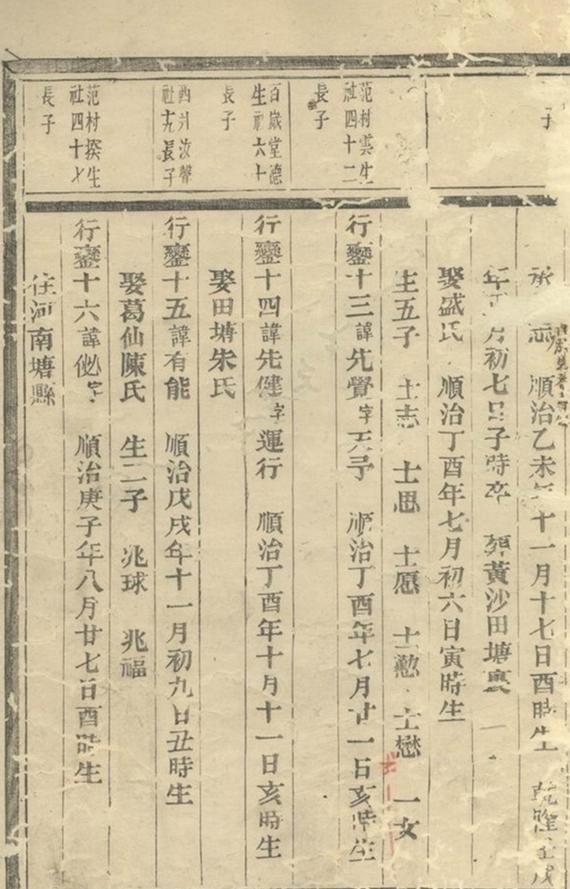 子
志 順治乙未年十一月十七日酉時生 乾隆
年 月初七日子時卒 葬黃沙田塘裏
娶盛氏 順治丁酉年七月初六日寅時生
生五子 士志 士思 士愿 士懃 士懋 一女
范村雲生
社四十二
長子
行鑾十三諱先覺字天予 順治丁酉年七月廿一日亥時生
百歲堂德
生社六十
長子
行鑾十四諱先健字運行 順治丁酉年十月十一日亥時生
娶田塘朱氏
四川汝聲
社九長子
行鑾十五諱有能 順治戊戌年十一月初九日丑時生
娶葛仙陳氏 生二子 兆球 兆福
范村揆生
社四十七
長子
行鑾十六諱佖字 順治庚子年八月廿七日酉時生
住河南塘縣